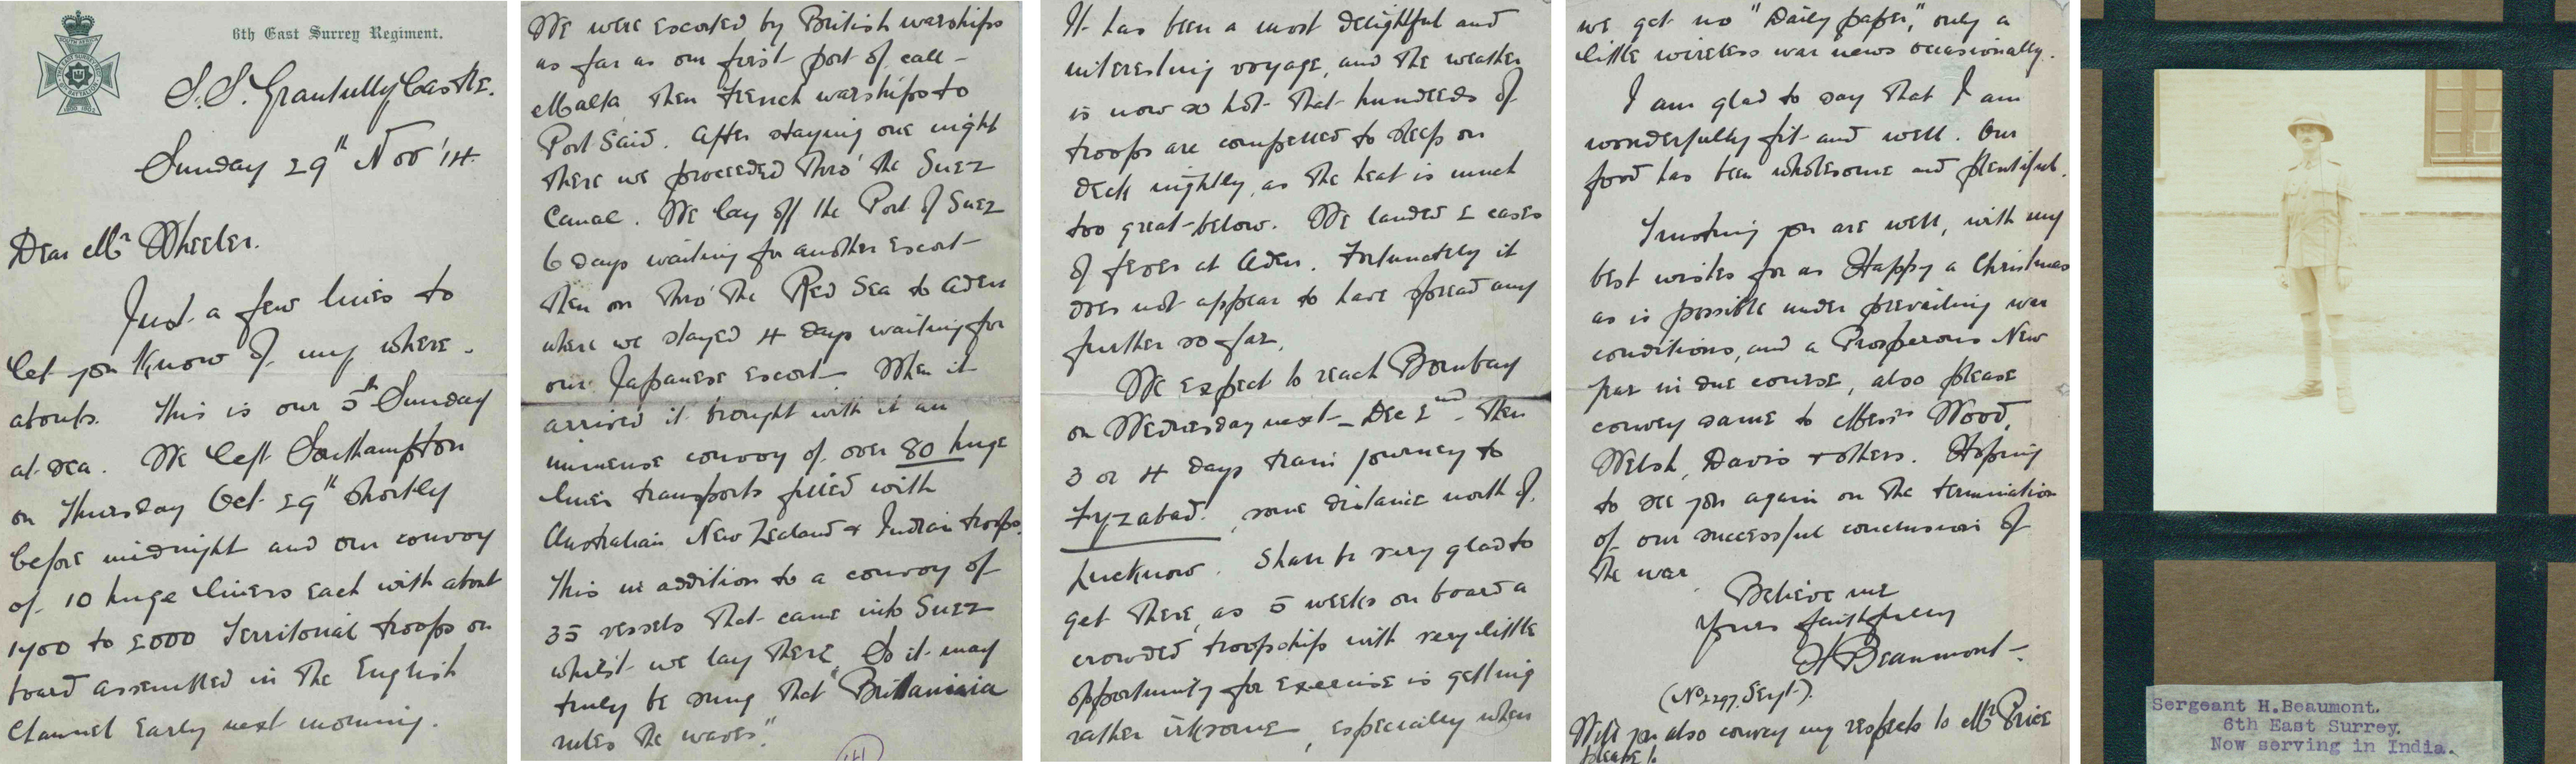 6th East Surrey Regiment.
S.S. Grantully Castle.
Sunday 29th Nov '14.
Dear Mr Wheeler.
Just a few lines to
let you know of my where-
abouts. This is our 5th Sunday
at sea. We left Southampton
on Thursday Oct 29th shortly
before midnight and our convoy
of 10 huge liners each with about
1700 to 2000 Territorial troops on
board assembled in the English
Channel early next morning.
We were escorted by British warships
as far as our first port of call -
Malta then French warships to
Port Said. After staying one night
there we proceeded thro' the Suez
Canal. We lay off the Port of Suez
6 days waiting for another escort -
then on thro' the Red Sea to Aden
where we stayed 4 days waiting for
our Japanese escort. When it
arrived it brought with it an
immense convoy of over 80 huge
liner transports filled with
Australian New Zealand & Indian troops.
This in addition to a convoy of
35 vessels that came into Suez
whilst we lay there. So it may
truly be sung that "Brittania
rules the waves."
It has been a most delightful and
interesting voyage, and the weather
is now so hot that hundreds of
troops are compelled to sleep on
deck nightly, as the heat is much
too great below. We landed 2 cases
of fever at Aden. Fortunately it
does not appear to have spread any
further so far.
We expect to reach Bombay
on Wednesday next - Dec 2nd. Then
3 or 4 days train journey to
Fyzabad!, some distance north of
Lucknow. Shall be very glad to
get there, as 5 weeks on board a
crowded troopship with very little
opportunity for exercise is getting
rather irksome, especially when
we get no "Daily paper," only a
little wireless war news occasionally.
I am glad to say that I am
wonderfully fit and well. Our
food has been wholesome and plentiful.
Trusting you are well, with my
best wishes for as Happy a Christmas
as is possible under prevailing war
conditions, and a Prosperous New
year in due course, also please
convey same to Messrs Wood,
Welsh, Davis & others. Hoping
to see you again on the termination
of our successful conclusion of
the war
Believe me
Yours faithfully
H Beaumont -
(No 2297 Sergt.).
Will you also convey my respects to Mr Price
please!
Sergeant H.Beaumont.
6th East Surrey.
Now serving in India.